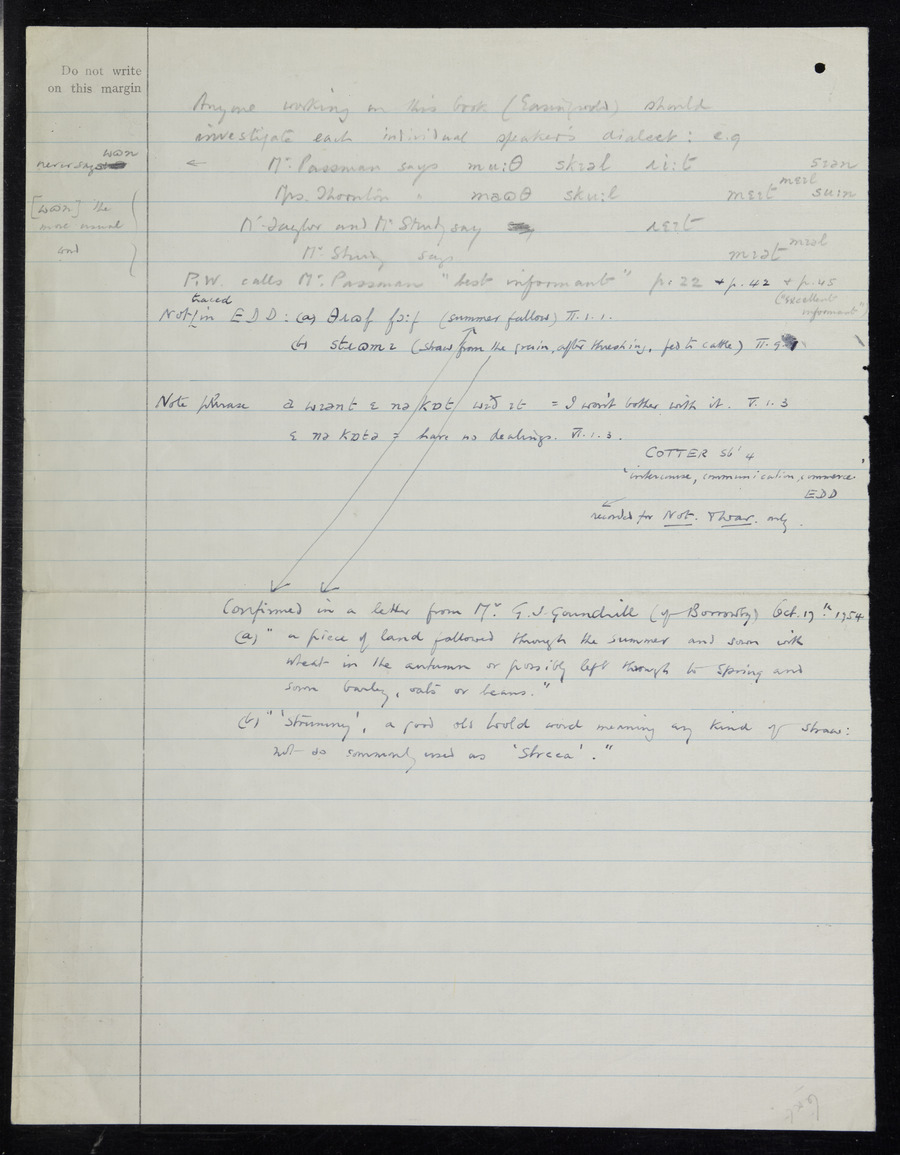 Do not write
on this margin
Anyone working on this book (Easingwold) should
investigate each individual speaker's dialect: e.g
wɒn
never says
← Mr. Passman says mu:θ skɪəl ɹi:t sɪən
Mrs. Thornton " maʊθ sku:l mɛɪt mɛɪl su:n
[wɒn] the
more usual
Mr Taylor and Mr Study say ɹɛɪt
Mr Study says mɪət mɪəl
P.W. calls Mr. Passman "best informant" p. 22 + p. 42 + p. 45
("excellent
informant")
Not traced in EDD: (a) θɹɒf fɔ:f (summer fallow) II.1.1.
(b) (straw from the grain, after threshing, fed to cattle) II.9.
Note phrase = I won't bother with it. V.1.3
ɛ nə kɒtə = have no dealings. VI.1.3.
COTTER sb' 4
'intercourse, communication, commerce'
EDD
recorded for Not. & War. only.
Confirmed in a letter from Mr G.J. (of Borrowby) Oct. 19th 1954
(a) "a piece of land fallowed through the summer and sown with
wheat in the autumn or possibly left through to Spring and
sown barley, oats or beans."
(b) "'Strummy', a good old word meaning any kind of straw:
not so commonly used as 'Streea'."